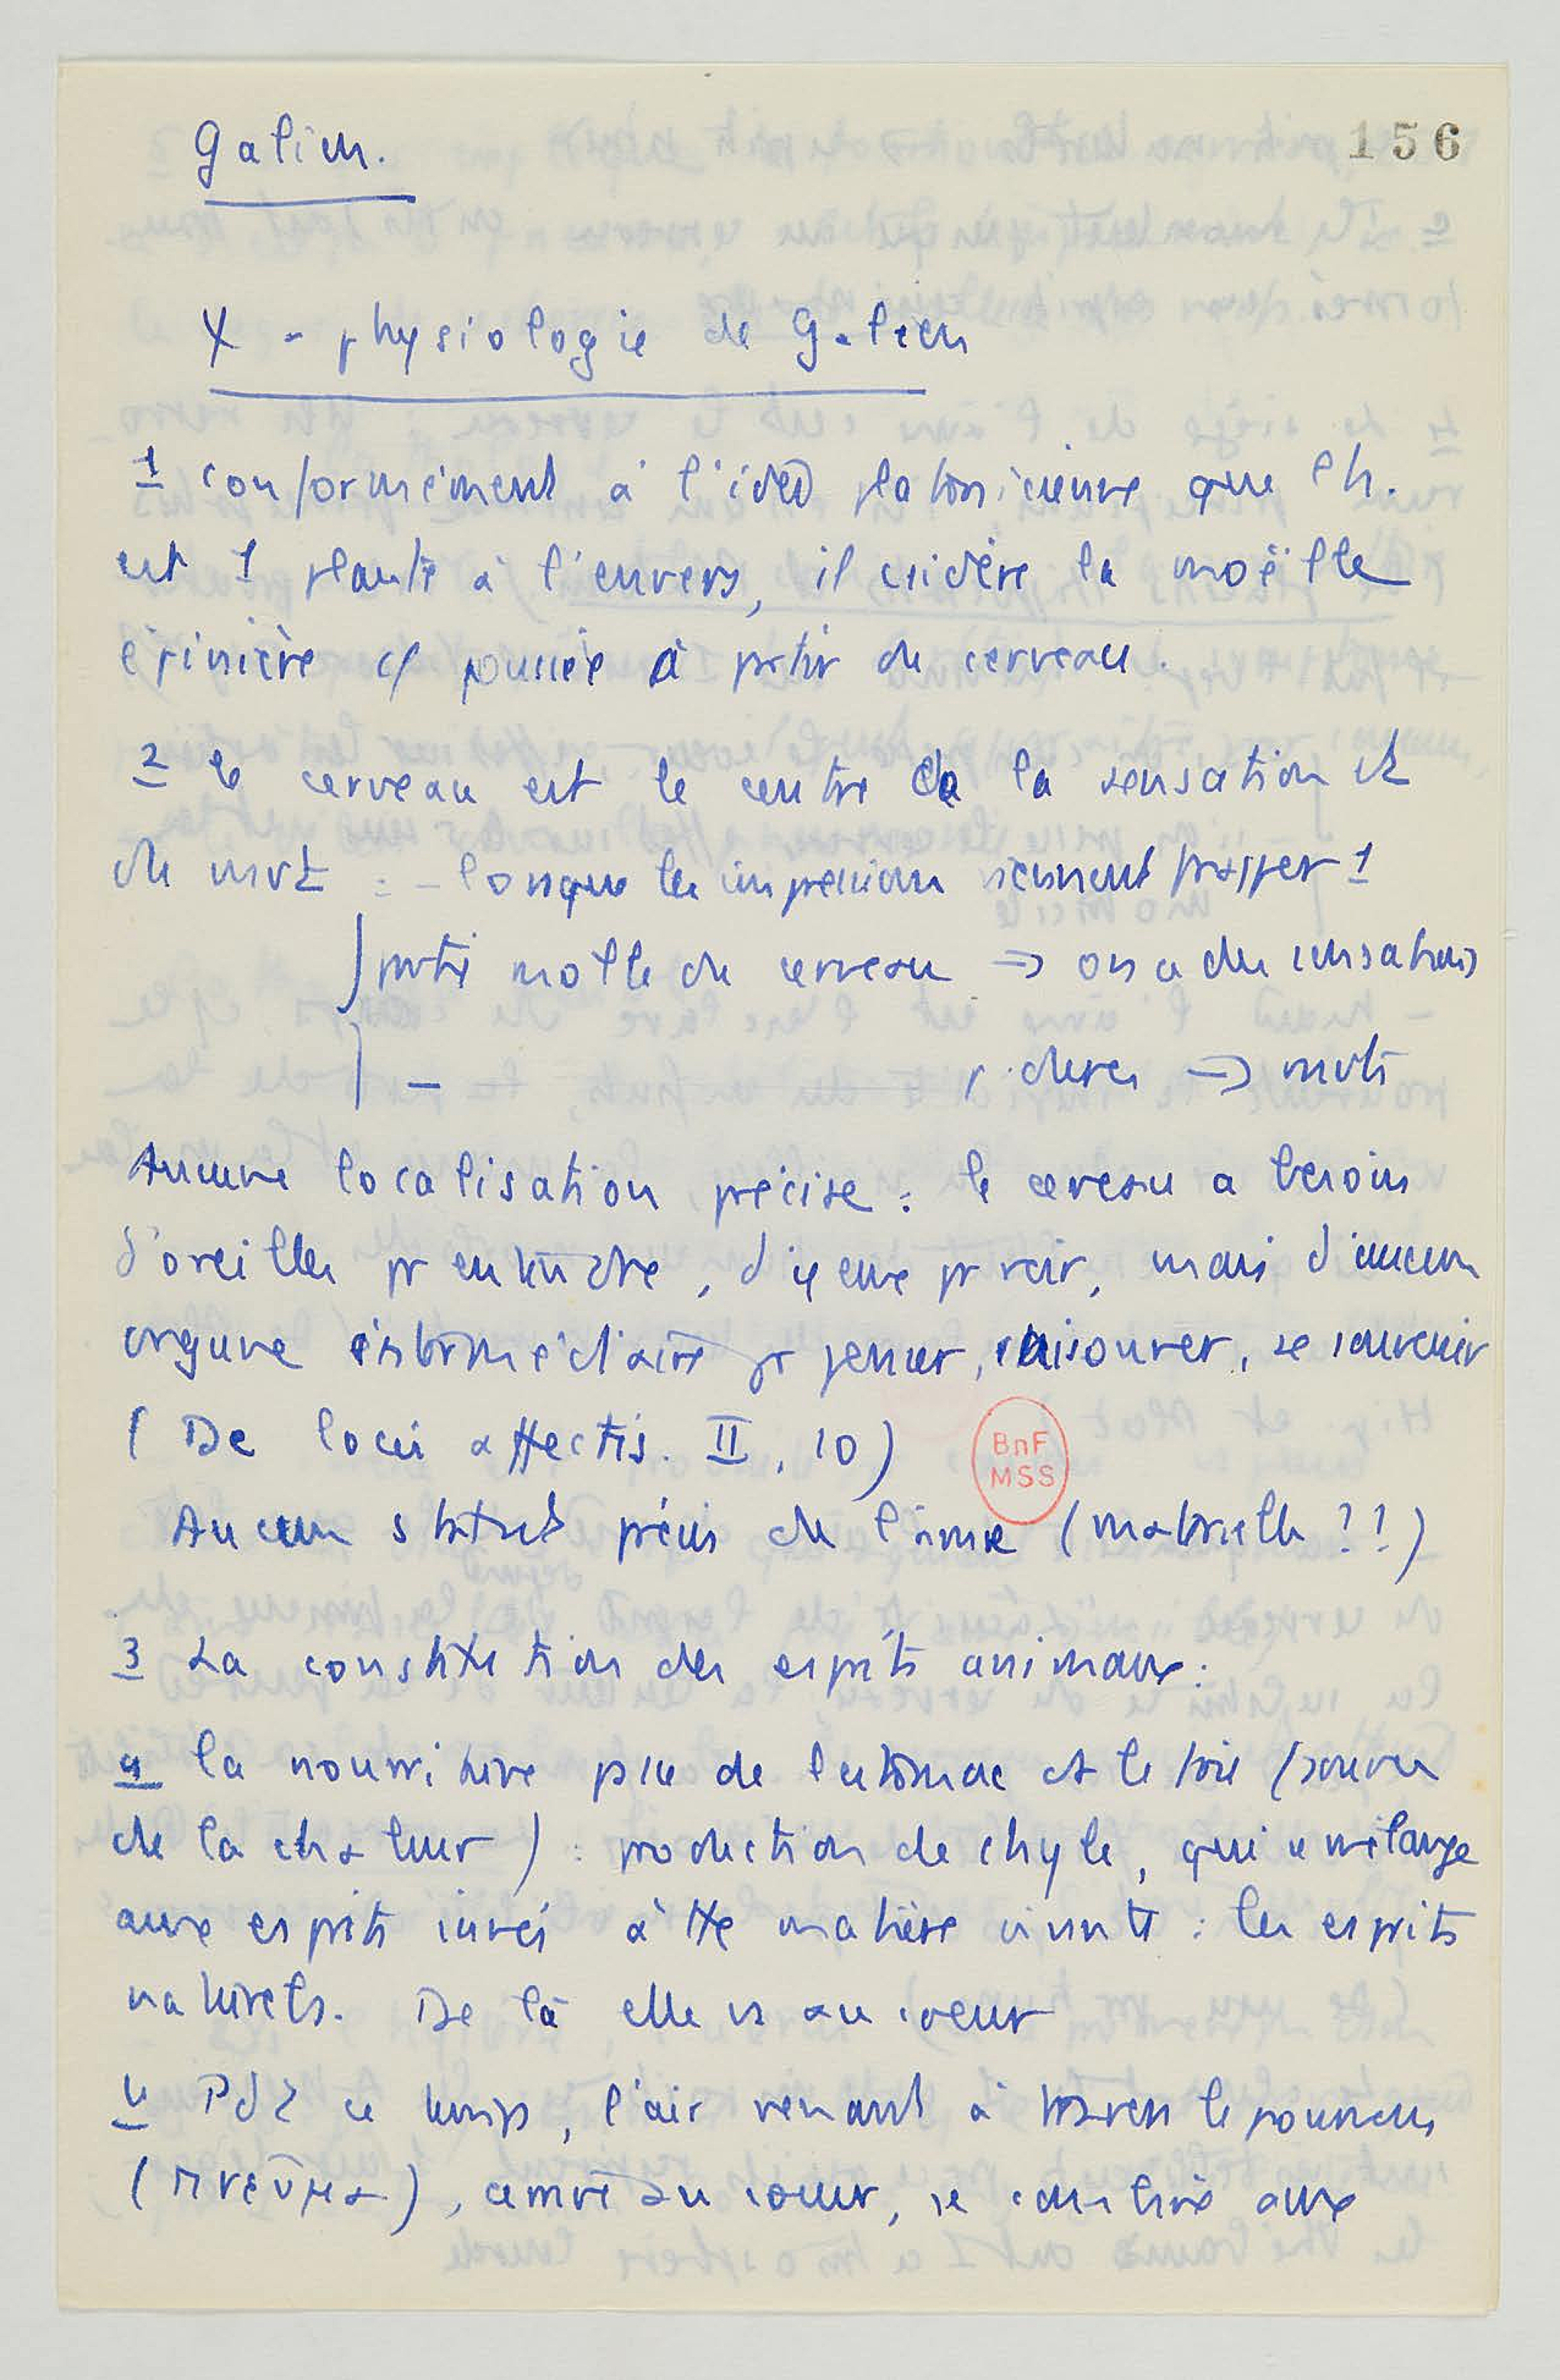 Galien.
156
X - physiologie de Galien
1 conformément à l'idée platonicienne que l'h.
est 1 plante à l'envers, il csidère la moëlle
épinière cf poussée à partir du cerveau.
2 le cerveau est le centre de la sensation et
du mvt : - lorsque les impressions viennent frapper 1
partie molle du cerveau => on a des sensations
— p. dures => mvts
Aucune localisation précise : le cerveau a besoin
d'oreilles pr entendre, d'yeux pr voir, mais d'aucun
organe intermédiaire pr penser, raisonner, se souvenir
( De locis affectis. II, 10)
BnF
MSS
Aucun statut précis de l'âme (matérielle ??)
3 La constitution des esprits animaux :
a la nourriture psse de l'estomac ds le foie (source
de la chaleur) : production de chyle, qui se mélange
aux esprits innés à tte matière vivante : les esprits
naturels. De là elle va au coeur
b Pdt ce temps, l'air venant à travers le poumons
(πνεῦμα), au coeur, se aux